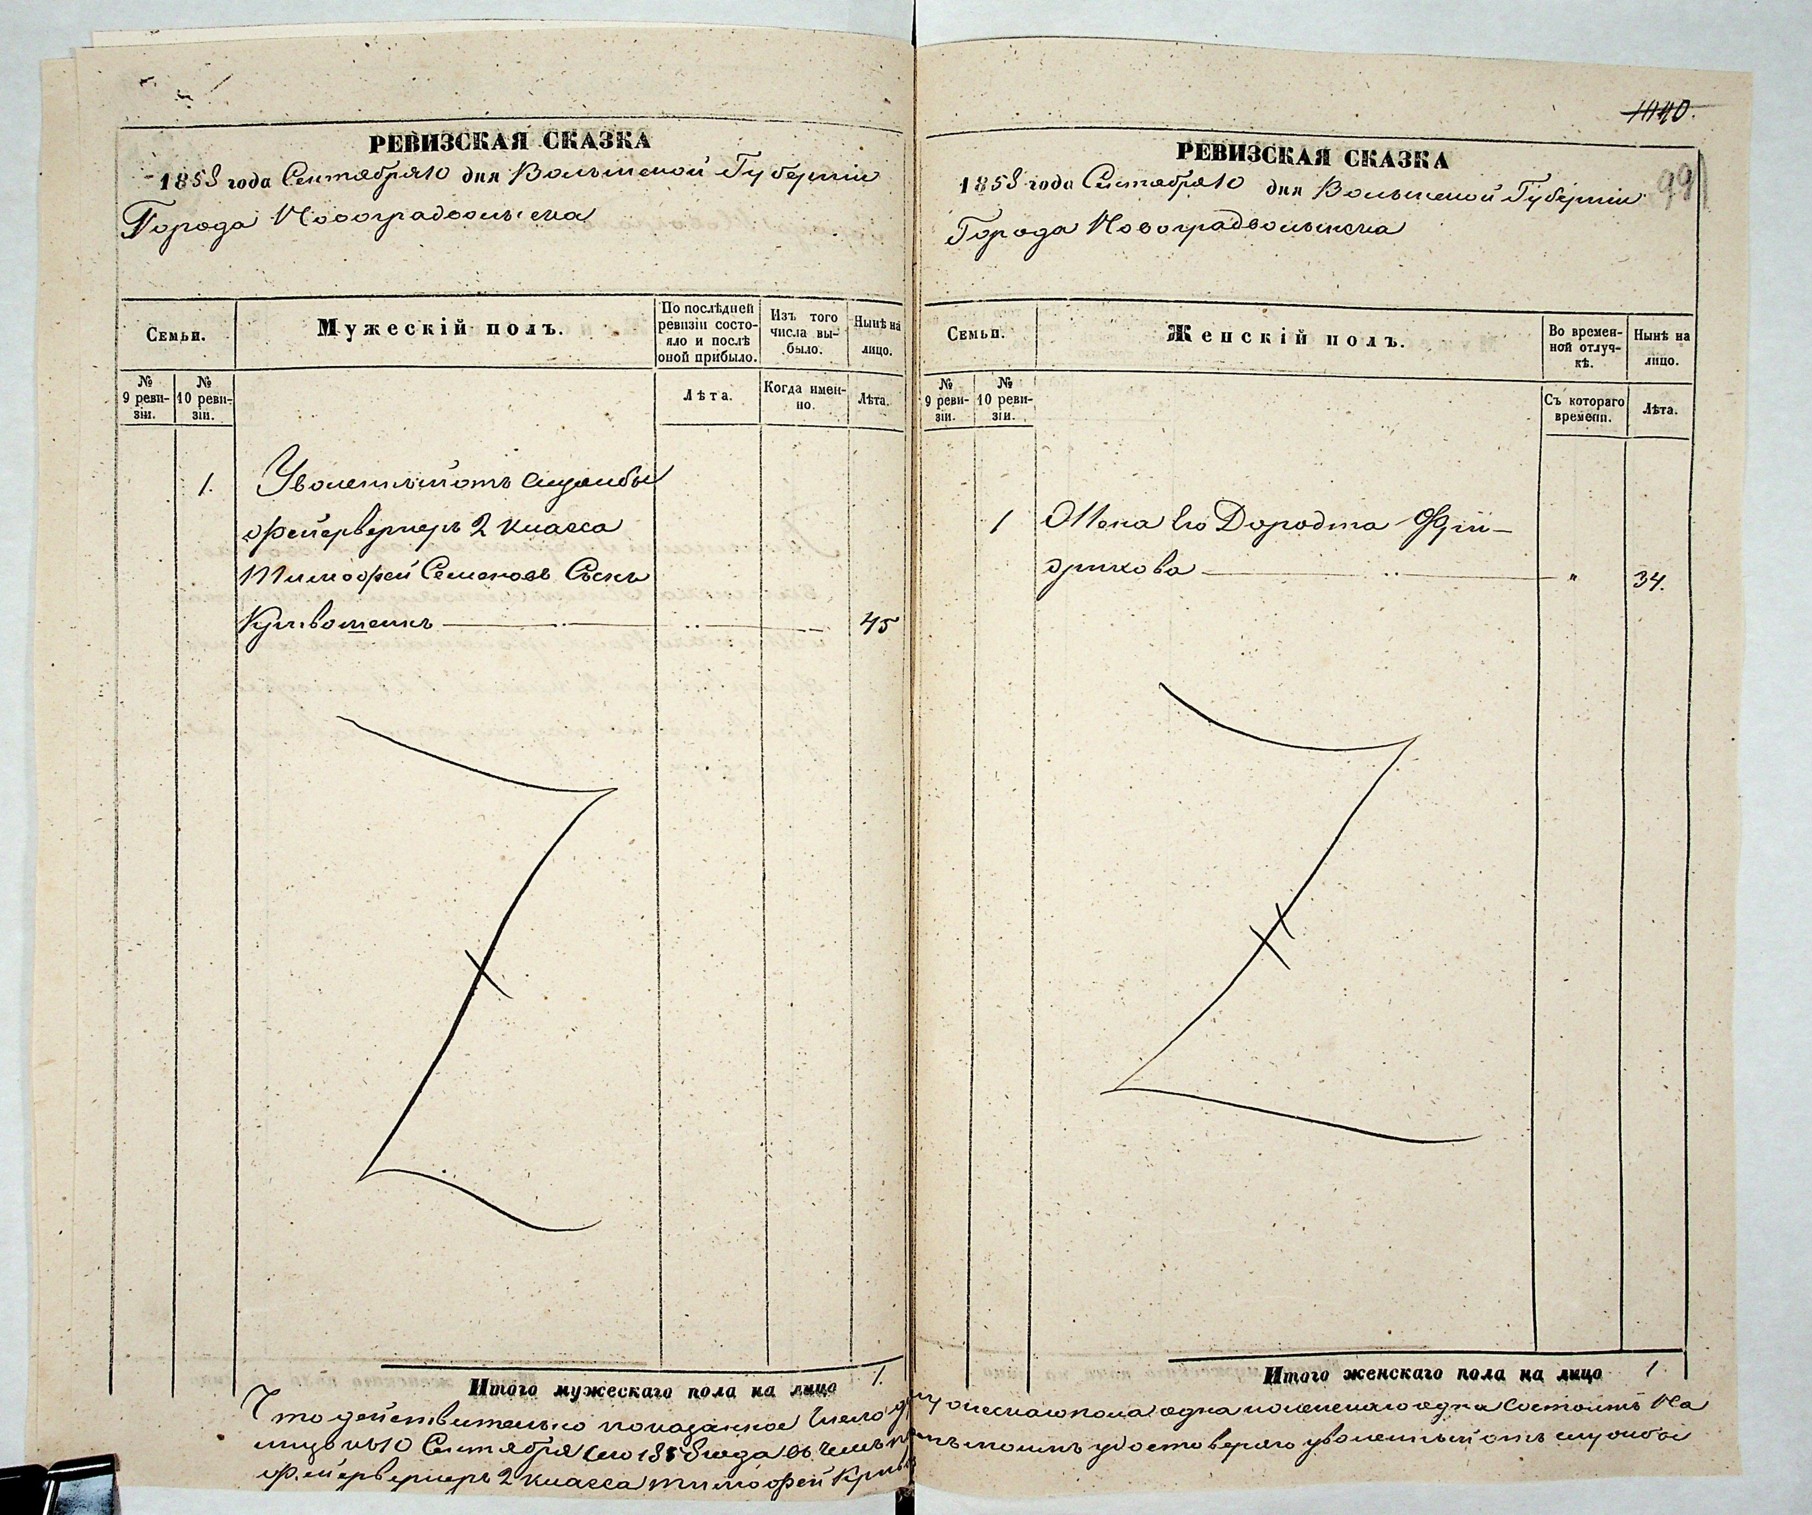 РЕВИЗСКАЯ СКАЗКА
1858 года Сентября 10 дня Волынской Губернiи
Города Новоградволынска
Семьи.
Мужескiй полъ.
По послѣдней ревизiи состояло и послѣ оной прибыло.
Изъ того числа выбыло.
Нынѣ на лицо.
№ 9 ревизiи.
№ 10 ревизiи.
Лѣта.
Когда именно.
Лѣта.
1. Уволенный отъ службы
фейерверкеръ 2 класса
Тимофей Семеновъ Сынъ
Кривошеинъ 45
Итого мужескаго пола на лицо 1.
1040.
99
РЕВИЗСКАЯ СКАЗКА
1858 года Сентября 10 дня Волынской Губернiи
Города Новоградволынска
Семьи.
Женскiй полъ.
Во временной отлучкѣ.
Нынѣ на лицо.
№ 9 ревизiи.
№ 10 ревизiи.
Съ котораго времени.
Лѣта.
1 Жена его Доротта Фри-
дрихова " 34.
Итого женскаго пола на лицо 1
Что действительно показанное число душъ мужескаго пола одна и женскаго одна состоитъ на
лицо къ 10 Сентября сего 1858 года въ чемъ удостоверяю уволенный отъ службы
фейерверкеръ 2 класса Тимофей